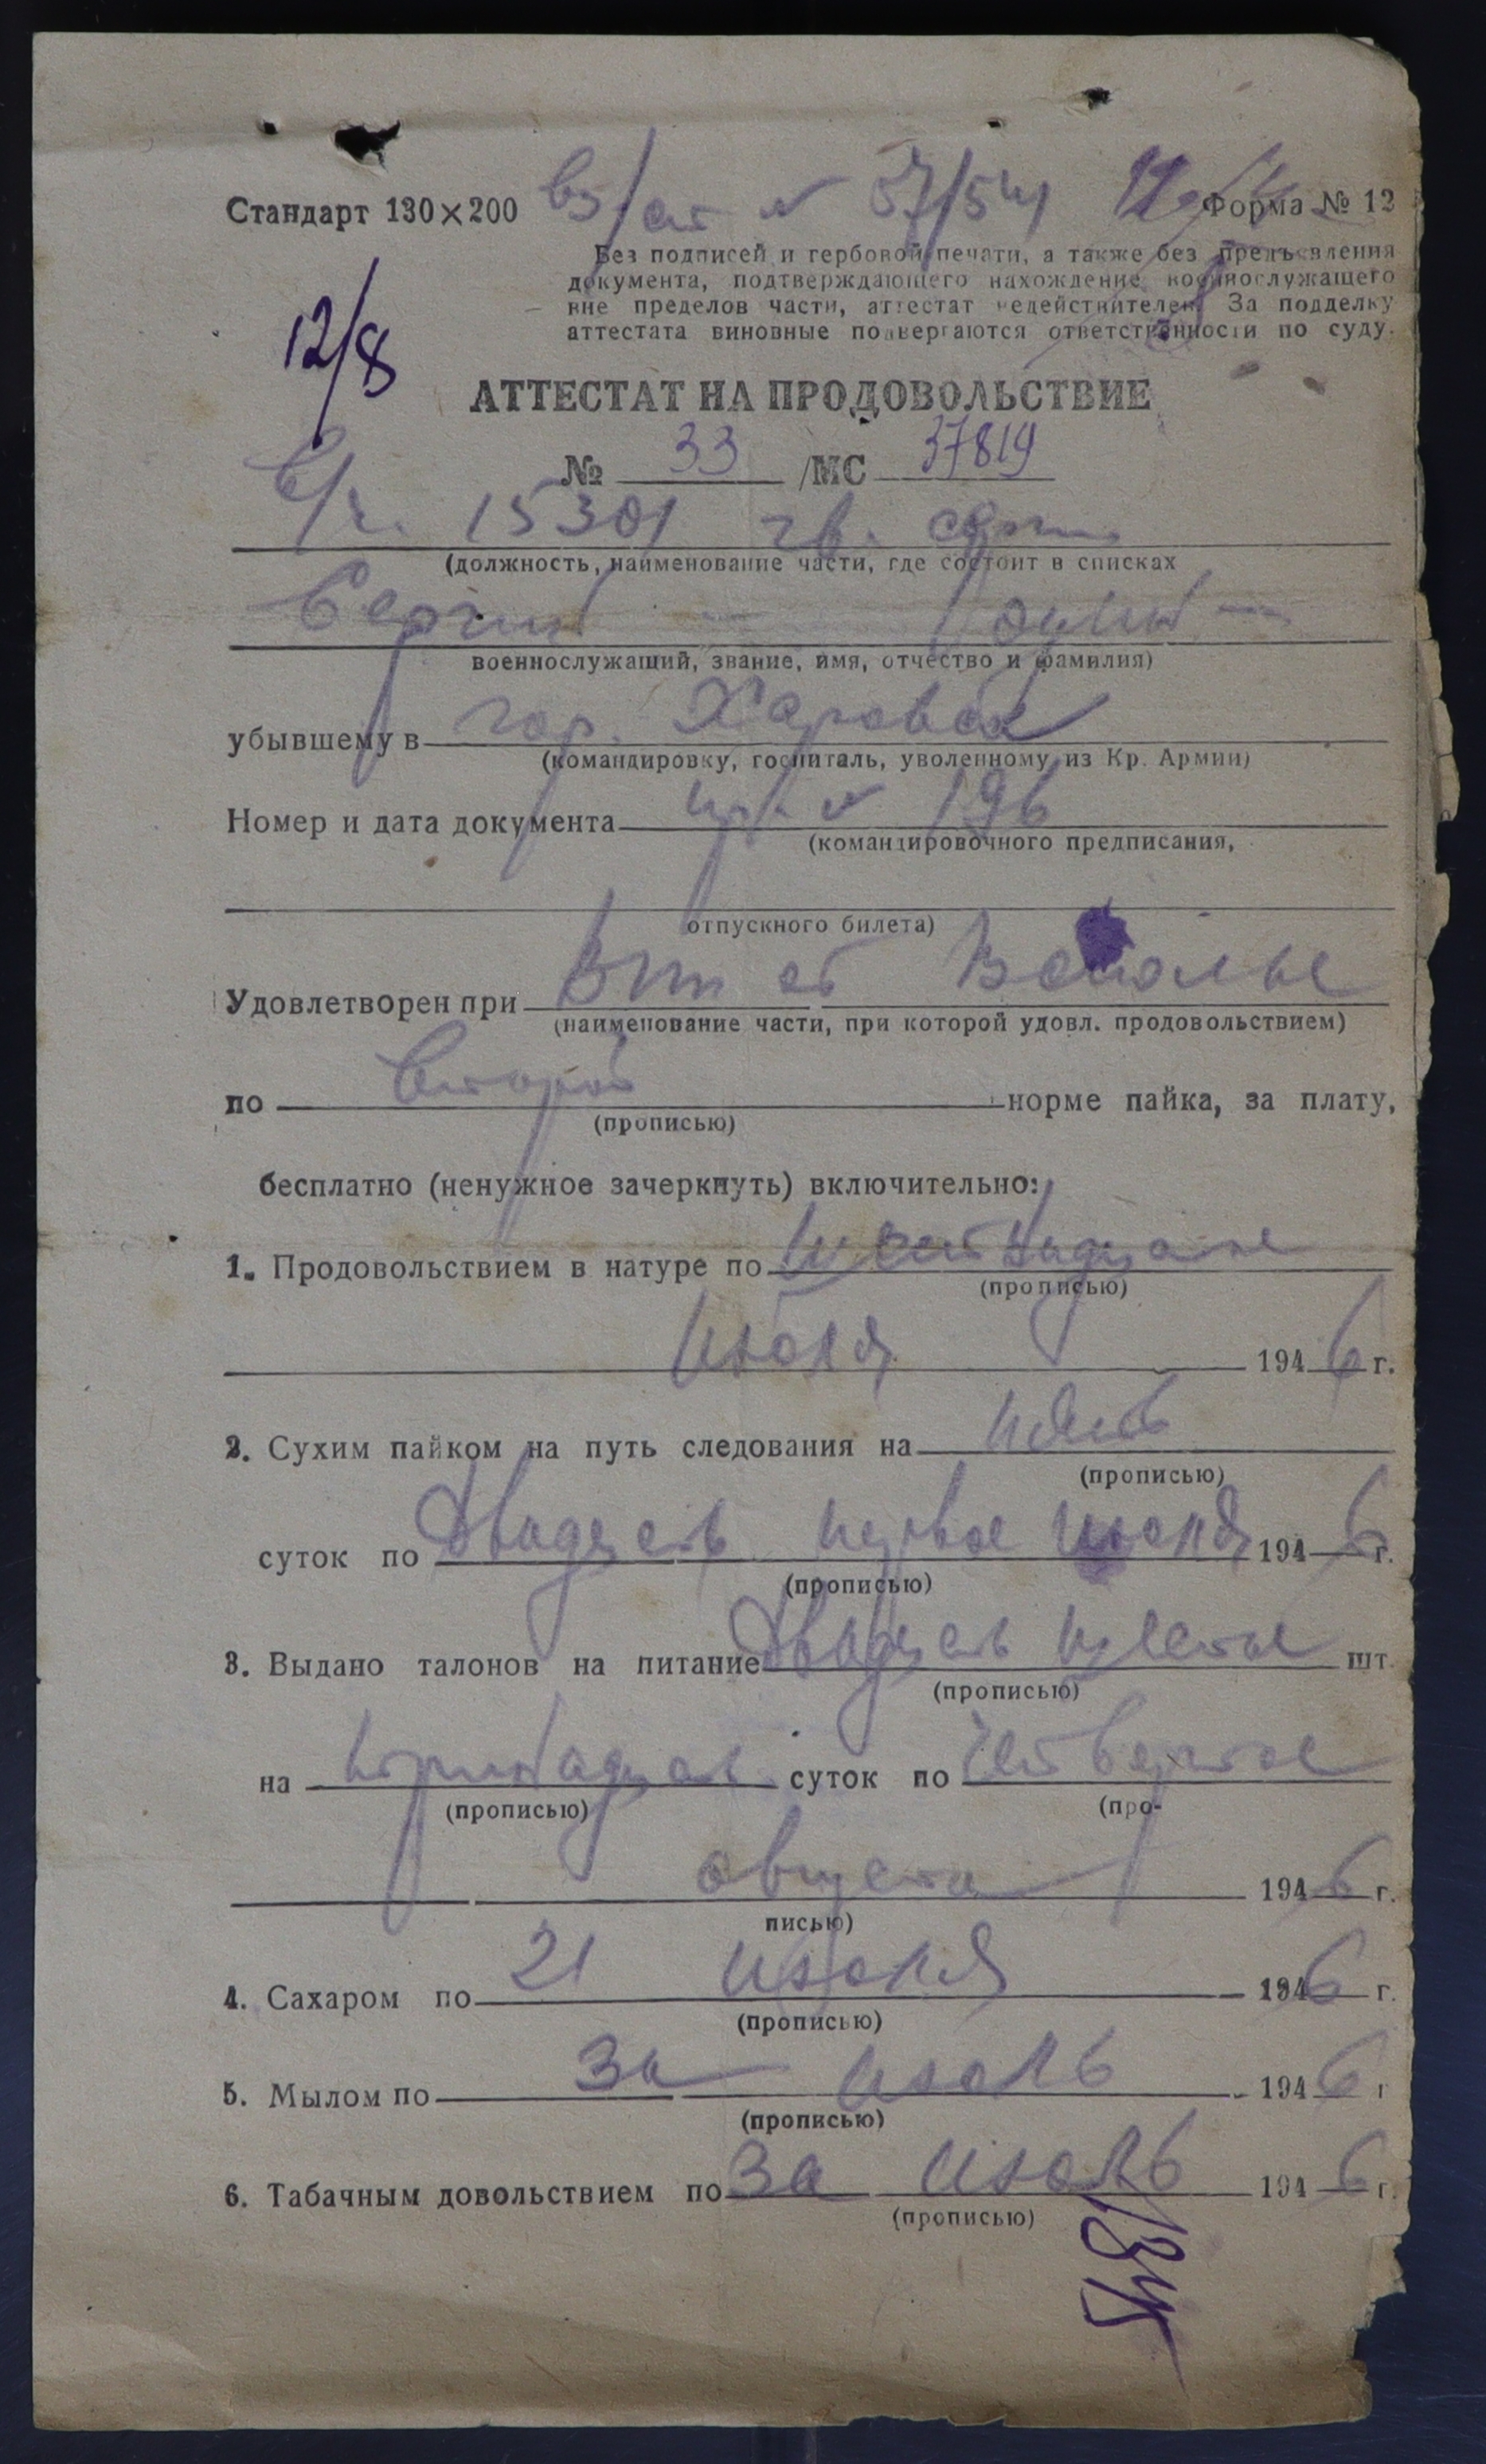 Стандарт 130×200 вз/ат № 57/541 Форма № 12
Без подписей и гербовой печати, а также без предъявления
документа, подтверждающего нахождение военнослужащего
вне пределов части, аттестат недействителен. За подделку
аттестата виновные подвергаются ответственности по суду.
12/8
АТТЕСТАТ НА ПРОДОВОЛЬСТВИЕ
№ 33 /МС 37819
в/ч. 15301 гв.
(должность, наименование части, где состоит в списках
военнослужащий, звание, имя, отчество и фамилия)
убывшему в гор.
(командировку, госпиталь, уволенному из Кр. Армии)
Номер и дата документа № 196
(командировочного предписания,
отпускного билета)
Удовлетворен при
(наименование части, при которой удовл. продовольствием)
по второй норме пайка, за плату,
(прописью)
бесплатно (ненужное зачеркнуть) включительно:
1. Продовольствием в натуре по шестнадцатое
(прописью)
июля 1946 г.
2. Сухим пайком на путь следования на пять
(прописью)
суток по двадцать первое июля 1946 г.
(прописью)
3. Выдано талонов на питание двадцать шт.
(прописью)
на суток по четвертое
(прописью) (про-
августа 1946 г.
писью)
4. Сахаром по 21 июля 1946 г.
(прописью)
5. Мылом по за июль 1946 г
(прописью)
6. Табачным довольствием по за июль 1946 г.
(прописью)